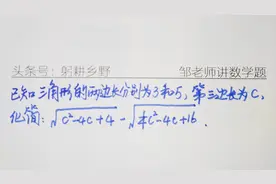 头条号：躬耕乡野
邹老师讲数学题
已知三角形的两边长分别为3和5，第三边长为C，
化简：√(C²-4C+4) - √(¼C²-4C+16)．